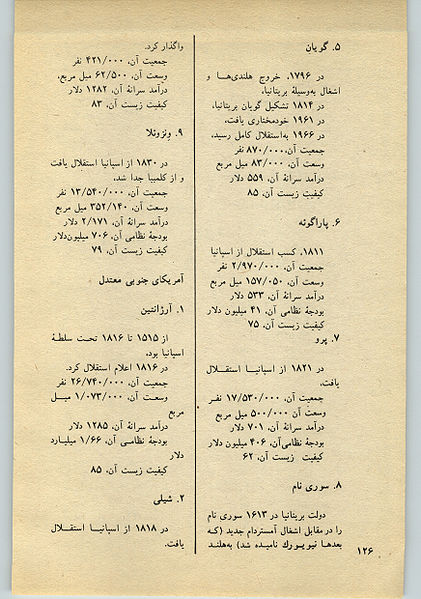 ۵. گویان
در ۱۷۹۶، خروج هلندی‌ها و
اشغال به‌وسیلهٔ بریتانیا،
در ۱۸۱۴ تشکیل گویان بریتانیا،
در ۱۹۶۱ خودمختاری یافت،
در ۱۹۶۶ به‌استقلال کامل رسید،
جمعیت آن، ۸۷۰/۰۰۰ نفر
وسعت آن، ۸۳/۰۰۰ میل مربع
درآمد سرانهٔ آن، ۵۵۹ دلار
کیفیت زیست آن، ۸۵
۶. پاراگوئه
۱۸۱۱، کسب استقلال از اسپانیا
جمعیت آن، ۲/۹۷۰/۰۰۰ نفر
وسعت آن، ۱۵۷/۰۵۰ میل مربع
درآمد سرانهٔ آن، ۵۳۳ دلار
بودجهٔ نظامی آن، ۴۱ میلیون دلار
کیفیت زیست آن، ۷۵
۷. پرو
در ۱۸۲۱ از اسپانیا استقلال
یافت،
جمعیت آن، ۱۷/۵۳۰/۰۰۰ نفر
وسعت آن ۵۰۰/۰۰۰ میل مربع
درآمد سرانهٔ آن، ۷۰۱ دلار
بودجهٔ نظامی‌آن، ۴۰۶ میلیون دلار
کیفیت زیست آن، ۶۲
۸. سوری نام
دولت بریتانیا در ۱۶۱۳ سوری نام
را در مقابل اشغال آمستردام جدید (که
بعدها نیویورک نامیده شد) به‌هلند
واگذار کرد.
جمعیت آن، ۴۲۱/۰۰۰ نفر
وسعت آن، ۶۲/۵۰۰ میل مربع،
درآمد سرانهٔ آن، ۱۲۸۲ دلار
کیفیت زیست آن، ۸۳
۹. ونزوئلا
در ۱۸۳۰ از اسپانیا استقلال یافت
و از کلمبیا جدا شد،
جمعیت آن، ۱۳/۵۴۰/۰۰۰ نفر
وسعت آن، ۳۵۲/۱۴۰ میل مربع
درآمد سرانهٔ آن، ۲/۱۷۱ دلار
بودجهٔ نظامی آن، ۷۰۶ میلیون‌دلار
کیفیت زیست آن، ۷۹
آمریکای جنوبی معتدل
۱. آرژانتین
از ۱۵۱۵ تا ۱۸۱۶ تحت سلطهٔ
اسپانیا بود،
در ۱۸۱۶ اعلام استقلال کرد.
جمعیت آن، ۲۶/۷۴۰/۰۰۰ نفر
وسعت آن، ۱/۰۷۳/۰۰۰ میل
مربع
درآمد سرانهٔ آن، ۱۲۸۵ دلار
بودجهٔ نظامی آن، ۱/۶۶ میلیارد
دلار
کیفیت زیست آن، ۸۵
۲. شیلی
در ۱۸۱۸ از اسپانیا استقلال
یافت.
۱۲۶